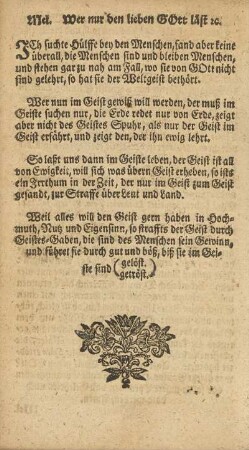 Mel. Wer nur den lieben GOtt läst ꝛc.
JCh suchte Hülffe bey den Menschen, fand aber keine
überall, die Menschen sind und bleiben Menschen,
und stehen gar zu nah am Fall, wo sie von GOtt nicht
sind gelehrt, so hat sie der Welt-geist bethört.
Wer nun im Geist gewiß will werden, der muß im
Geiste suchen nur, die Erde redet nur von Erde, zeigt
aber nicht des Geistes Spuhr, als nur der Geist im
Geist erfährt, und zeigt den, der ihn ewig lehrt.
So last uns dann im Geiste leben, der Geist ist all
von Ewigkeit, will sich was übern Geist erheben, so ists
ein Irrthum in der Zeit, der nur im Geist zum Geist
gesandt, zur Straffe über Leut und Land.
Weil alles will den Geist gern haben in Hoch-
muth, Nutz und Eigensinn, so straffts der Geist durch
Geistes-Gaben, die sind des Menschen sein Gewinn,
und führet sie durch gut und böß, biß sie im Gei-
ste sind (gelöst.
getröst.